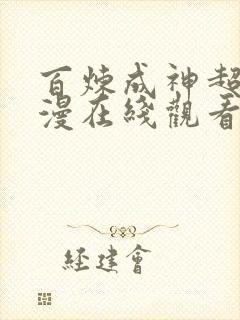 百炼成神超
漫在綫觀看
经建會